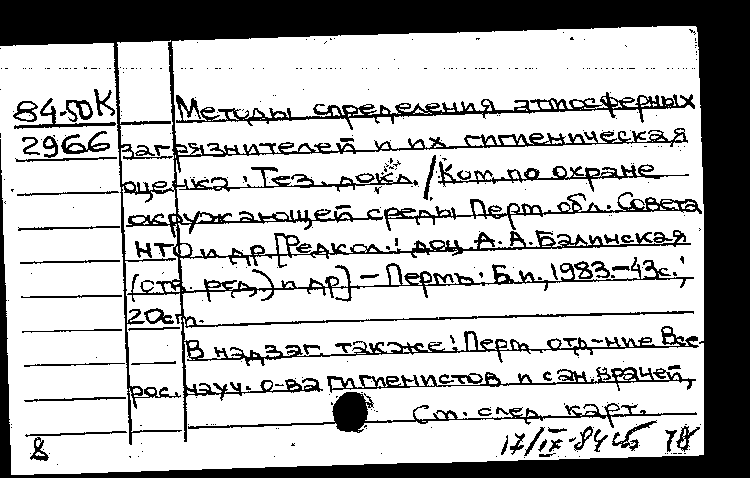 84-50К Методы определения атмосферных
2966 загрязнителей и их гигиеническая
оценка : Тез. докл. / Ком. по охране
окружающей среды Перм. обл. Совета
НТО и др. [Редкол.: доц. А. А. Балинская
(отв. ред.) и др.] - Пермь : Б.и., 1983.-43с.;
20см.
В надзаг. также: Перм. отд-ние Все-
рос. науч. о-ва гигиенистов и сан. врачей,
См. след. карт.
8 17/IX-84 78